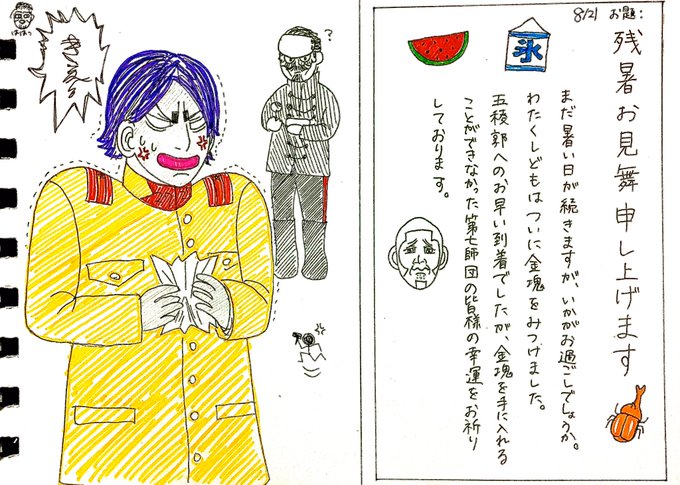 8/21 お題:
残暑お見舞申し上げます
氷
まだ暑い日が続きますが、いかがお過ごしでしょうか。
わたくしどもはついに金塊をみつけました。
五稜郭へのお早い到着でしたが、金塊を手に入れる
ことができなかった第七師団の皆様の幸運をお祈り
しております。
?